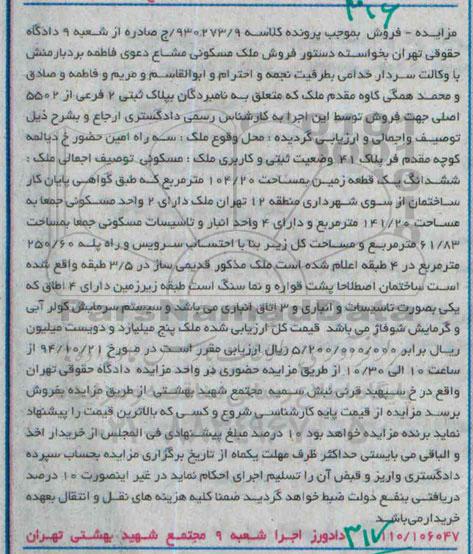 ۳۱۶
مزایده - فروش بموجب پرونده کلاسه ۹۳۰۲۷۳/۹/ج صادره از شعبه ۹ دادگاه
حقوقی تهران بخواسته دستور فروش ملک مسکونی مشاع دعوی فاطمه بردبارمنش
با وکالت سردار خدامی بطرفیت نجمه و احترام و ابوالقاسم و مریم و فاطمه و صادق
و محمد همگی کاوه مقدم ملک که متعلق به نامبردگان بپلاک ثبتی ۲ فرعی از ۵۵۰۲
اصلی جهت فروش توسط این اجرا به کارشناس رسمی دادگستری ارجاع و بشرح ذیل
توصیف واجمالی و ارزیابی گردیده : محل وقوع ملک : سه راه امین حضور خ دیالمه
کوچه مقدم فر پلاک ۴۱ وضعیت ثبتی و کاربری ملک : مسکونی توصیف اجمالی ملک :
ششدانگ یک قطعه زمین بمساحت ۱۰۴/۲۰ مترمربع که طبق گواهی پایان کار
ساختمان از سوی شهرداری منطقه ۱۲ تهران ملک دارای ۲ واحد مسکونی جمعا به
مساحت ۱۴۱/۲۰ مترمربع و دارای ۴ واحد انبار و تاسیسات مسکونی جمعا بمساحت
۶۱/۸۳ مترمربع و مساحت کل زیر بنا با احتساب سرویس و راه پله ۲۵۰/۶۰
مترمربع در ۴ طبقه اعلام شده است ملک مذکور قدیمی ساز در ۳/۵ طبقه واقع شده
است ساختمان اصطلاحا پشت قواره و نما سنگ است طبقه زیرزمین دارای ۴ اطاق که
یکی بصورت تاسیسات و انباری و ۳ اتاق انباری می‌باشد و سیستم سرمایش کولر آبی
و گرمایش شوفاژ می باشد قیمت کل ارزیابی شده ملک پنج میلیارد و دویست میلیون
ریال برابر ۵/۲۰۰/۰۰۰/۰۰۰ ریال ارزیابی مقرر است در مورخ ۹۴/۱۰/۲۱ از
ساعت ۱۰ الی ۱۰/۳۰ از طریق مزایده حضوری در واحد مزایده دادگاه حقوقی تهران
واقع در خ سپهبد قرنی نبش سمیه مجتمع شهید بهشتی از طریق مزایده بفروش
برسد مزایده از قیمت پایه کارشناسی شروع و کسی که بالاترین قیمت را پیشنهاد
نماید برنده مزایده خواهد بود ۱۰ درصد مبلغ پیشنهادی فی المجلس از خریدار اخذ
و الباقی می بایستی حداکثر ظرف مهلت یکماه از تاریخ برگزاری مزایده بحساب سپرده
دادگستری واریز و قبض آن را تسلیم اجرای احکام نماید در غیر اینصورت ۱۰ درصد
دریافتی بنفع دولت ضبط خواهد گردید ضمنا کلیه هزینه های نقل و انتقال بعهده
خریدار می‌باشد
۱۱۰/۱۰۶۰۴۷ ۳۱۷ دادورز اجرا شعبه ۹ مجتمع شهید بهشتی تهران